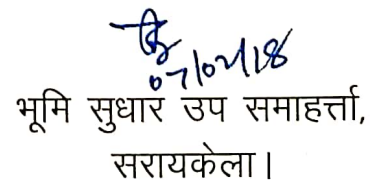 07/02/18
भूमि सुधार उप समाहर्त्ता,
सरायकेला।